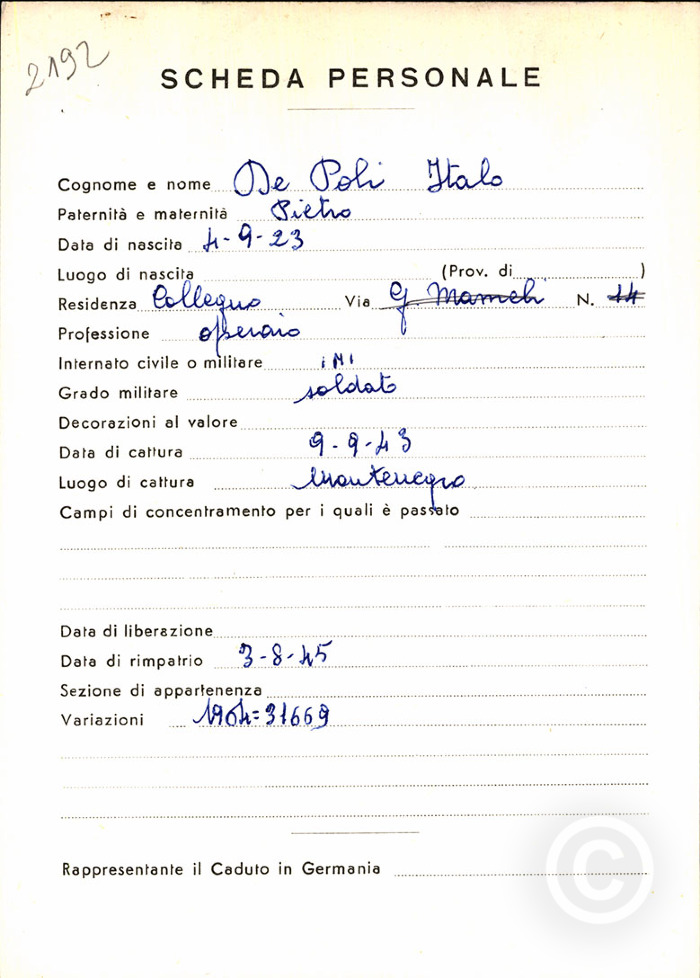 2192
SCHEDA PERSONALE
Cognome e nome De Poli Italo
Paternità e maternità Pietro
Data di nascita 4-9-23
Luogo di nascita (Prov. di )
Residenza Collegno Via G. Mameli N. 14
Professione operaio
Internato civile o militare IMI
Grado militare soldato
Decorazioni al valore
Data di cattura 9-9-43
Luogo di cattura Montenegro
Campi di concentramento per i quali è passato
Data di liberazione
Data di rimpatrio 3-8-45
Sezione di appartenenza
Variazioni 1964=31669
Rappresentante il Caduto in Germania
©